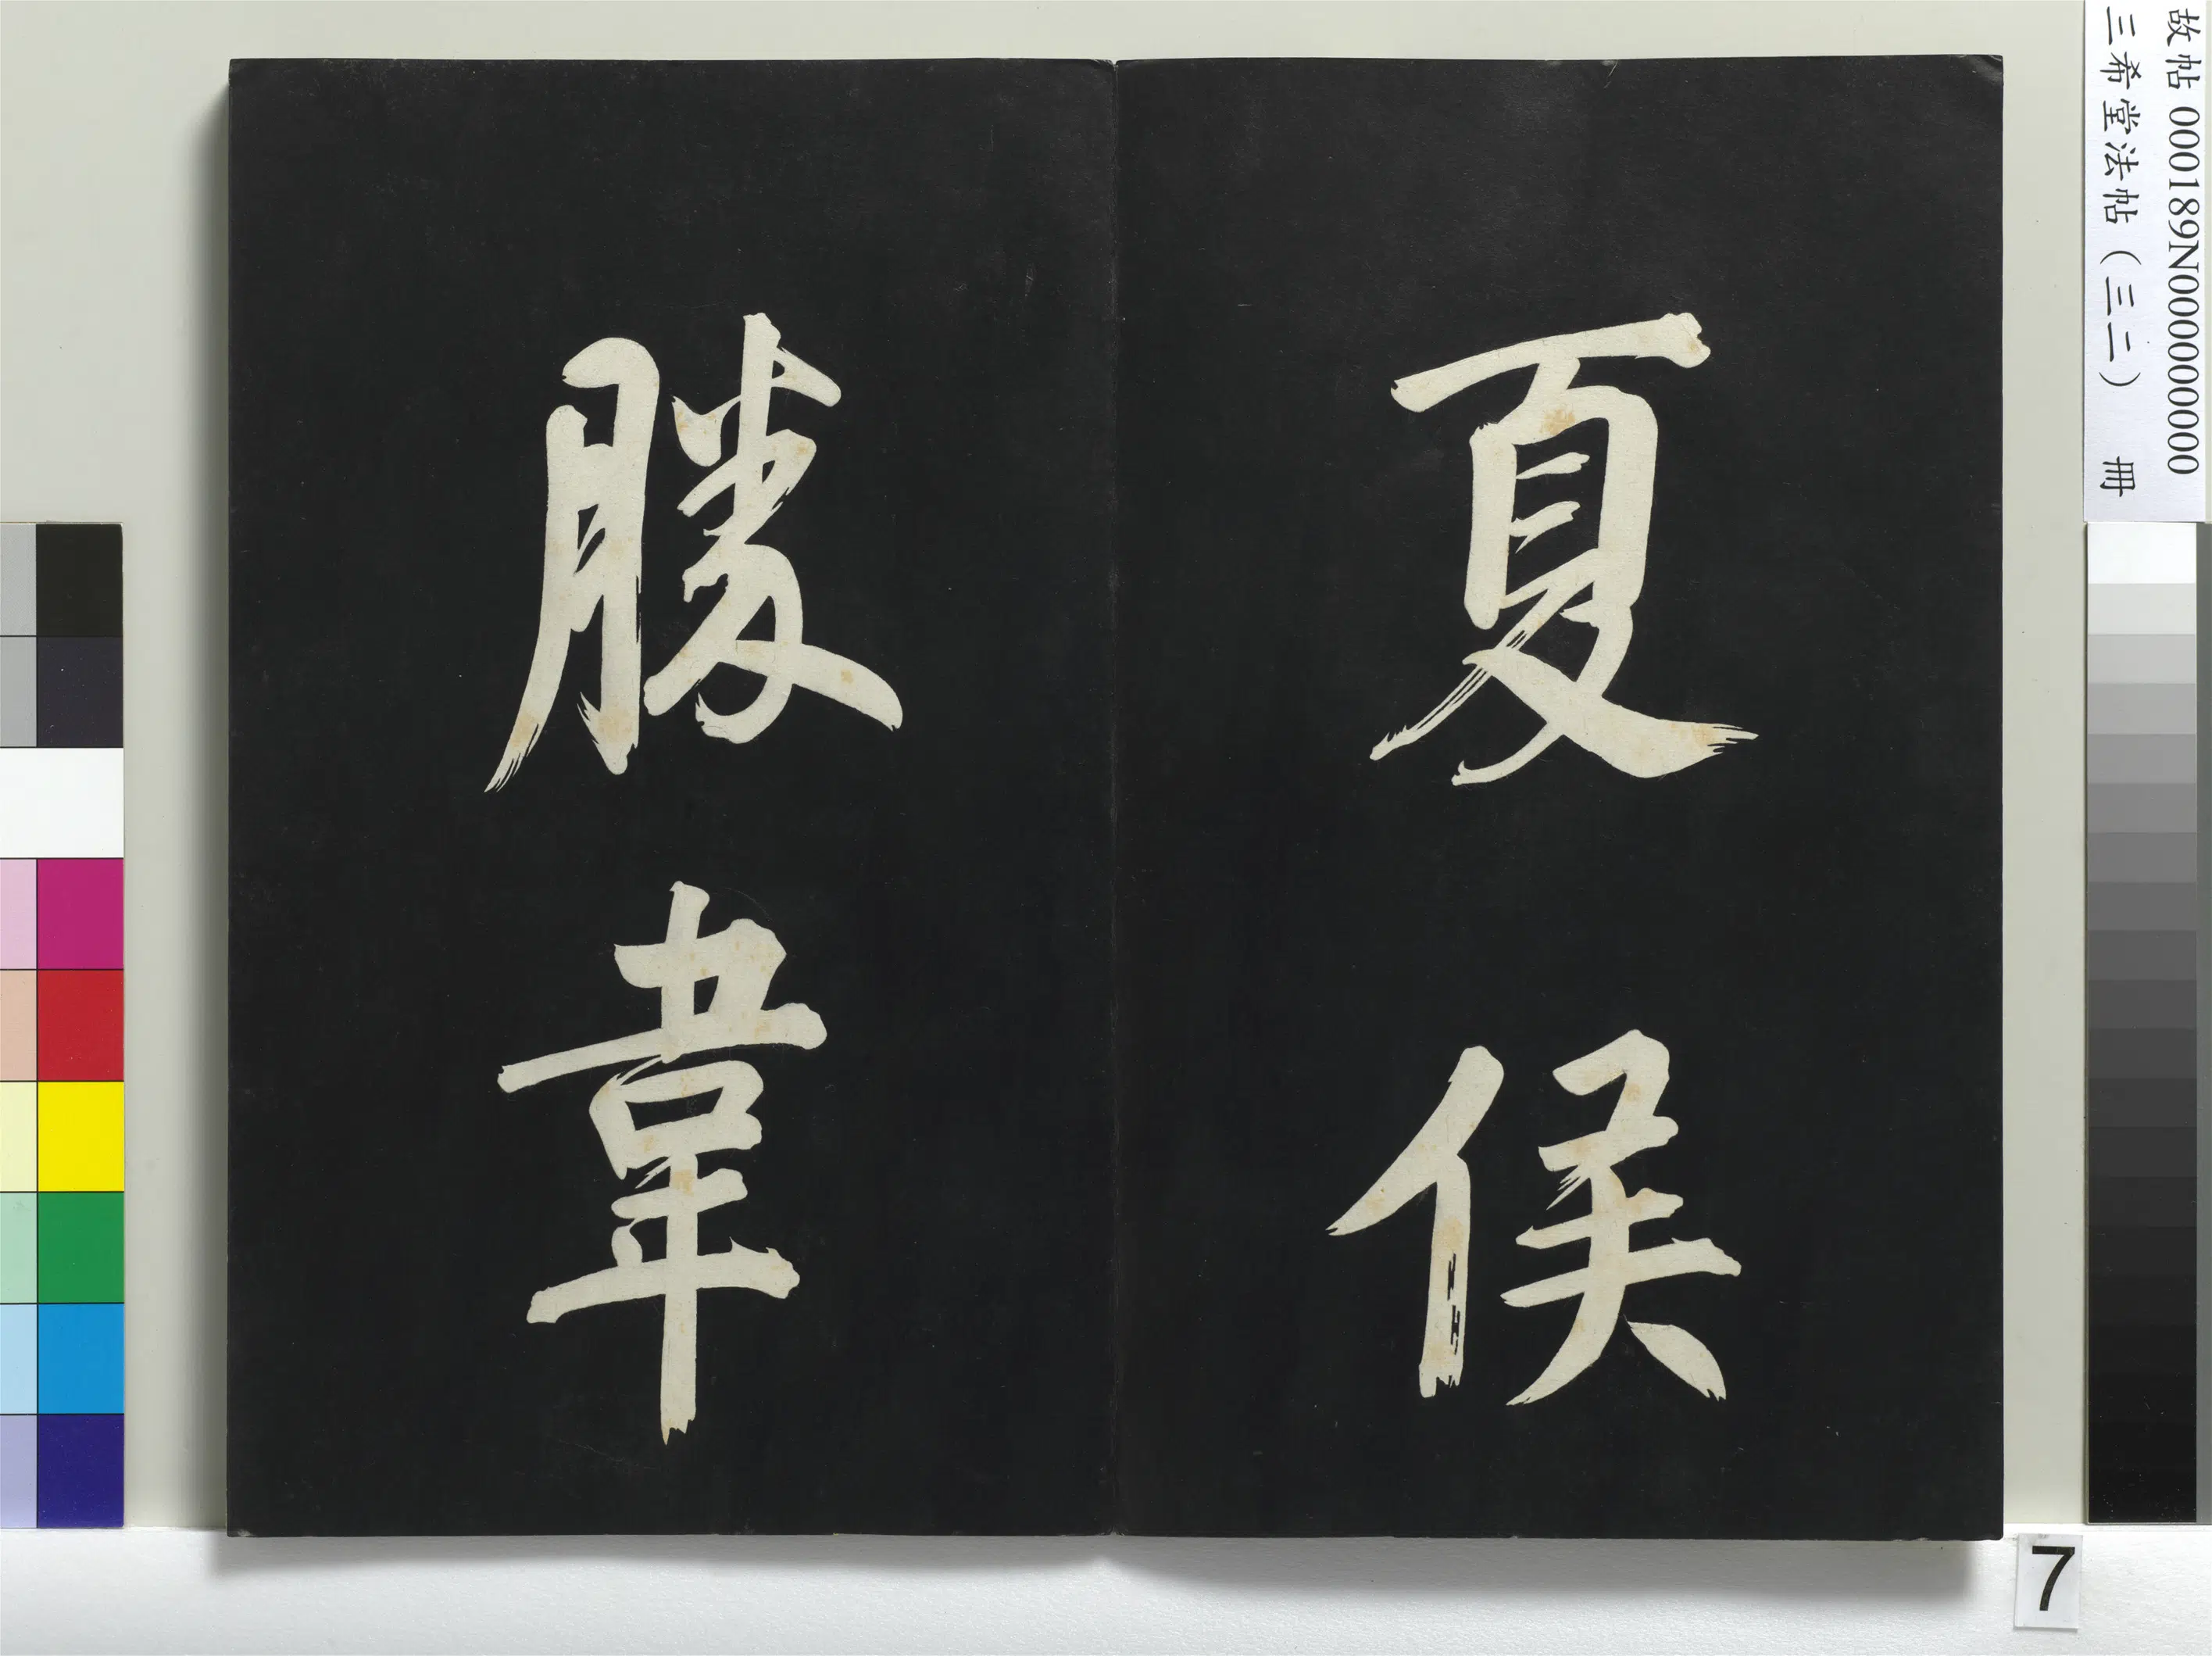 夏侯
勝韋
故帖 000189N000000000
三希堂法帖（三二） 冊
7